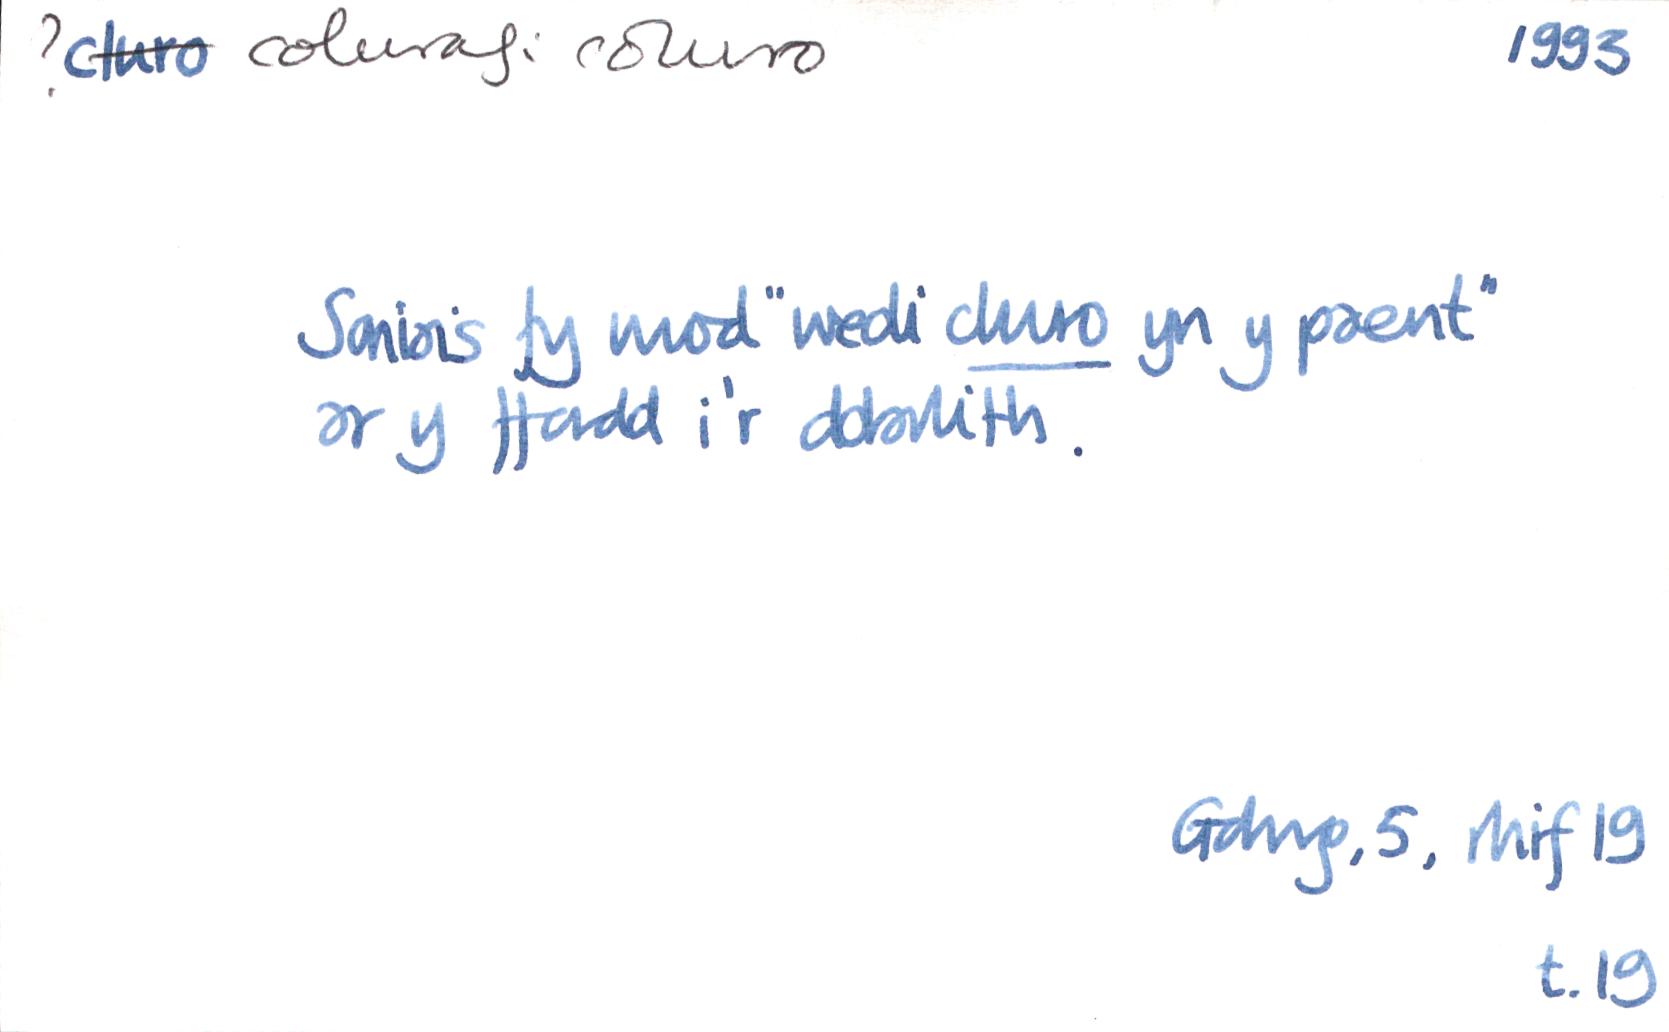 ? cluro coluraf: coluro 1993
Soniais fy mod "wedi cluro yn y paent"
ar y ffordd i'r ddarlith.
Golwg, 5, rhif 19
t. 19